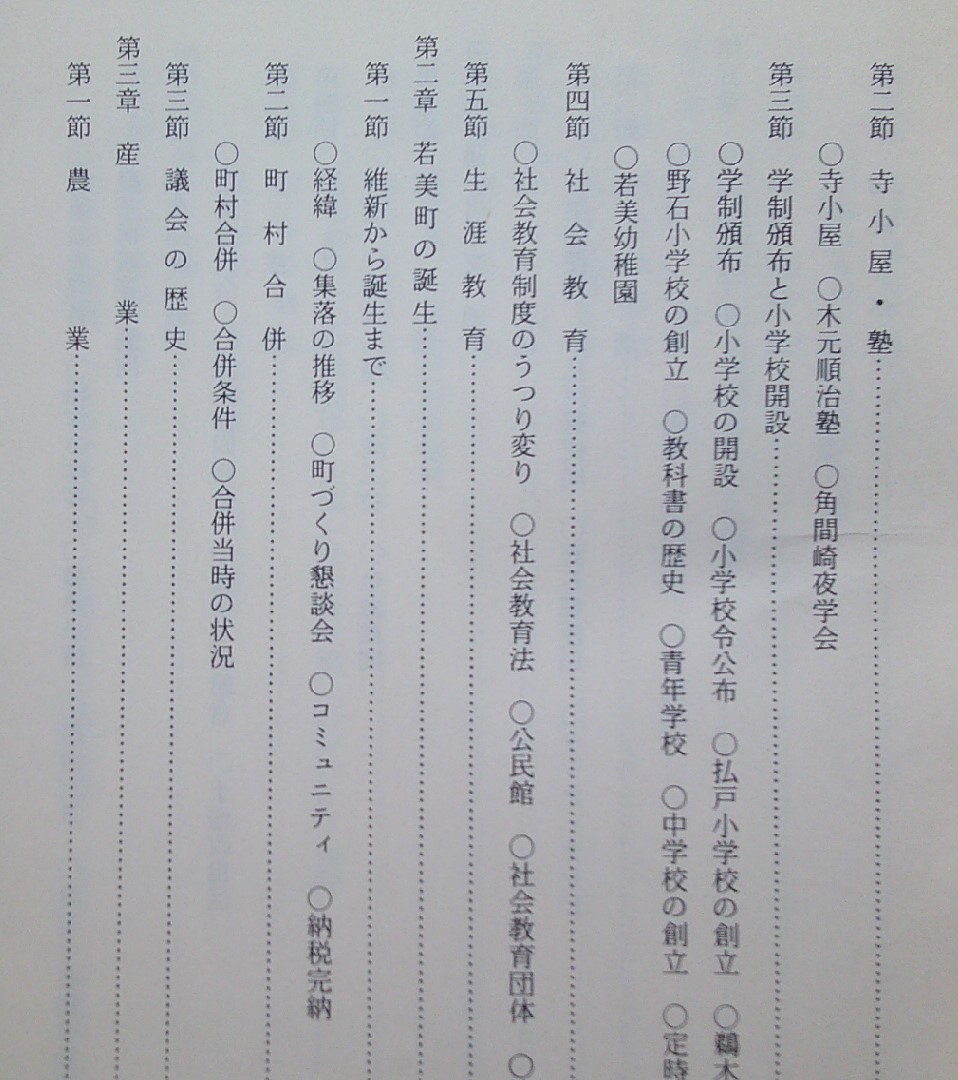 第二節 寺小屋・塾……………………
○寺小屋 ○木元順治塾 ○角間崎夜学会
第三節 学制頒布と小学校開設……………………
○学制頒布 ○小学校の開設 ○小学校令公布 ○払戸小学校の創立 ○鵜木
○野石小学校の創立 ○教科書の歴史 ○青年学校 ○中学校の創立 ○定時
○若美幼稚園
第四節 社会教育……………………
○社会教育制度のうつり変り ○社会教育法 ○公民館 ○社会教育団体 ○
第五節 生涯教育……………………
第二章 若美町の誕生……………………
第一節 維新から誕生まで……………………
○経緯 ○集落の推移 ○町づくり懇談会 ○コミュニティ ○納税完納
第二節 町村合併……………………
○町村合併 ○合併条件 ○合併当時の状況
第三節 議会の歴史……………………
第三章 産業……………………
第一節 農業……………………